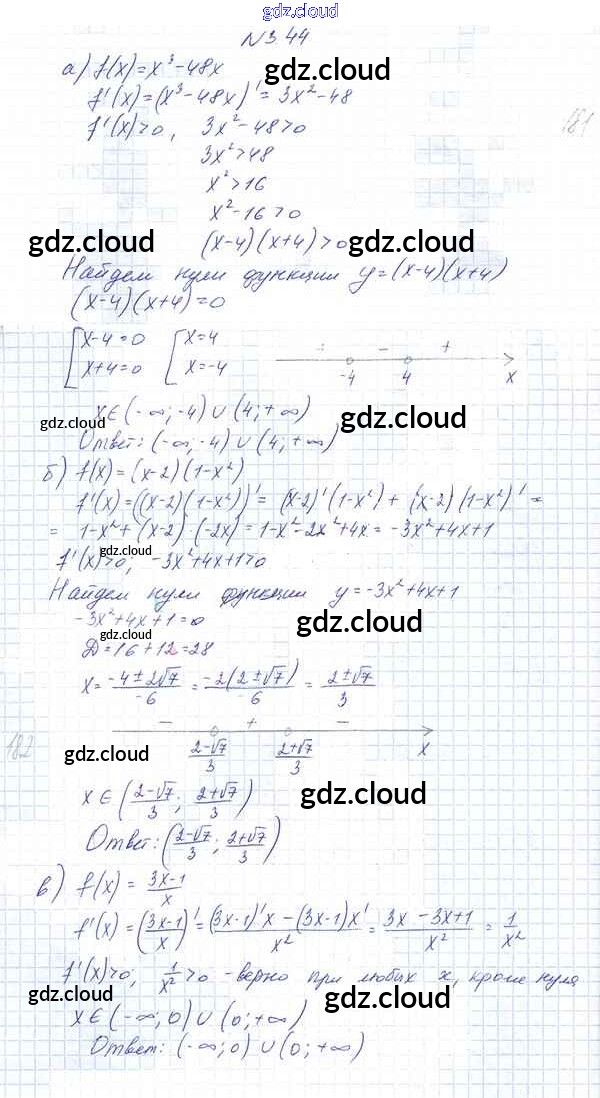 gdz.cloud
№344
a) f(x)=x³-48x
gdz.cloud
f'(x)=(x³-48x)'=3x²-48
f'(x)>0, 3x²-48>0
181
3x²>48
x²>16
x²-16>0
gdz.cloud (x-4)(x+4)>0 gdz.cloud
Найдем нули функции y=(x-4)(x+4)
(x-4)(x+4)=0
[x-4=0 [x=4 + - +
x+4=0 x=-4 -4 4 x
x∈(-∞;-4)∪(4;+∞)
gdz.cloud gdz.cloud
Ответ: (-∞;-4)∪(4;+∞)
б) f(x)=(x-2)(1-x²)
f'(x)=((x-2)(1-x²))'=(x-2)'(1-x²)+(x-2)(1-x²)'=
=1-x²+(x-2)·(-2x)=1-x²-2x²+4x=-3x²+4x+1
gdz.cloud
f'(x)>0; -3x²+4x+1>0
Найдем нули функции y=-3x²+4x+1
-3x²+4x+1=0
gdz.cloud gdz.cloud
D=16+12=28
x=(-4±2√7)/-6=(-2(2±√7))/-6=(2±√7)/3
- + -
182 gdz.cloud (2-√7)/3 (2+√7)/3 x gdz.cloud
x∈((2-√7)/3; (2+√7)/3)
gdz.cloud
Ответ: ((2-√7)/3; (2+√7)/3)
в) f(x)=(3x-1)/x
gdz.cloud gdz.cloud
f'(x)=((3x-1)/x)'=((3x-1)'x-(3x-1)x')/x²=(3x-3x+1)/x²=1/x²
f'(x)>0, 1/x²>0 -верно при любых x, кроме нуля
gdz.cloud gdz.cloud
x∈(-∞;0)∪(0;+∞)
Ответ: (-∞;0)∪(0;+∞)
gdz.cloud